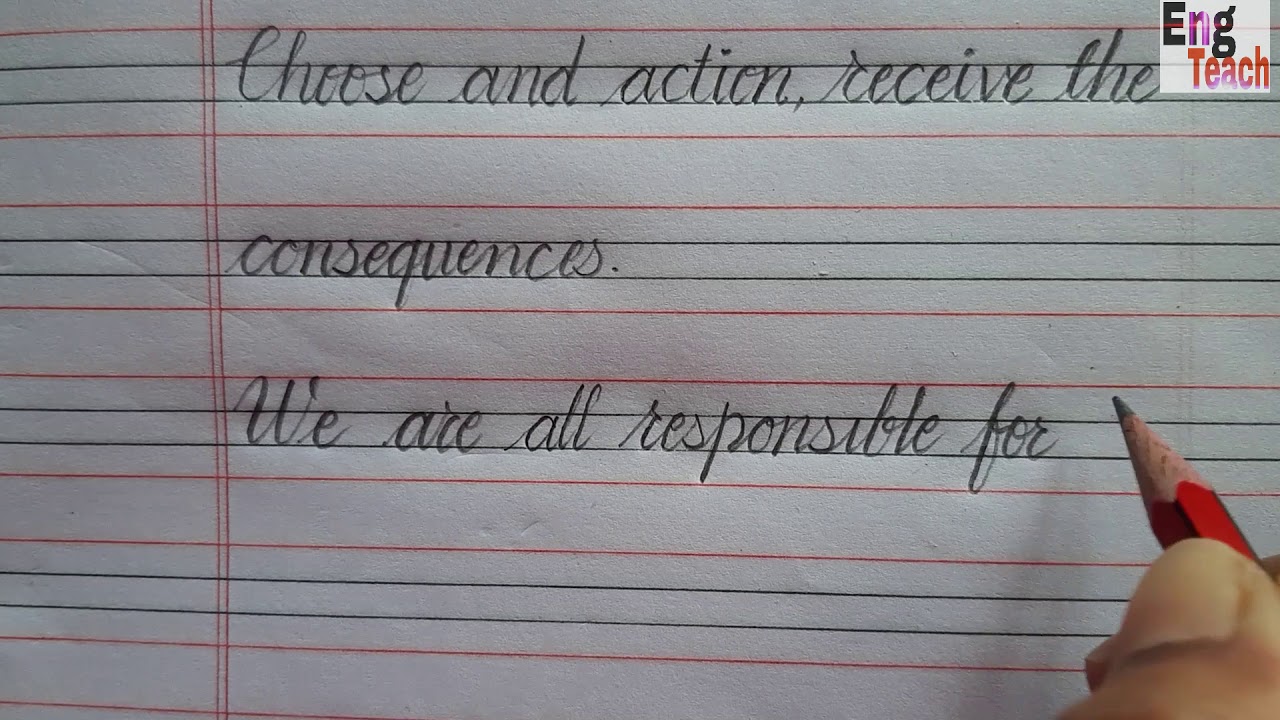 Eng
Teach
Choose and action, receive the
consequences.
We are all responsible for